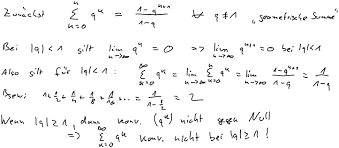 Zunächst \sum_{k=0}^{n} q^k = \frac{1-q^{n+1}}{1-q} ∀ q ≠ 1 „geometrische Summe“
Bei |q|<1 gilt \lim_{n→∞} q^n = 0 => \lim_{n→∞} q^{n+1} = 0 bei |q|<1
Also gilt für |q|<1 : \sum_{k=0}^{∞} q^k = \lim_{n→∞} \sum_{k=0}^{n} q^k = \lim_{n→∞} \frac{1-q^{n+1}}{1-q} = \frac{1}{1-q}
Bspw: 1+\frac{1}{2}+\frac{1}{4}+\frac{1}{8}+\frac{1}{16}+... = \frac{1}{1-\frac{1}{2}} = 2
Wenn |q|≥1, dann konv. (q^k) nicht gegen Null
=> \sum_{k=0}^{∞} q^k konv. nicht bei |q|≥1 !